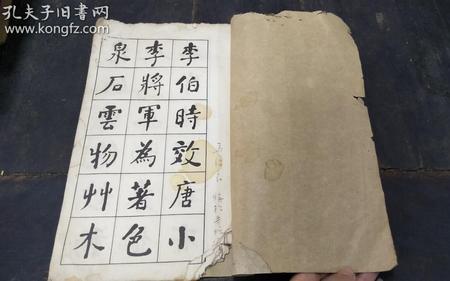 孔夫子旧书网
www.kongfz.com
李伯時效唐小
李將軍為著色
泉石雲物艸木